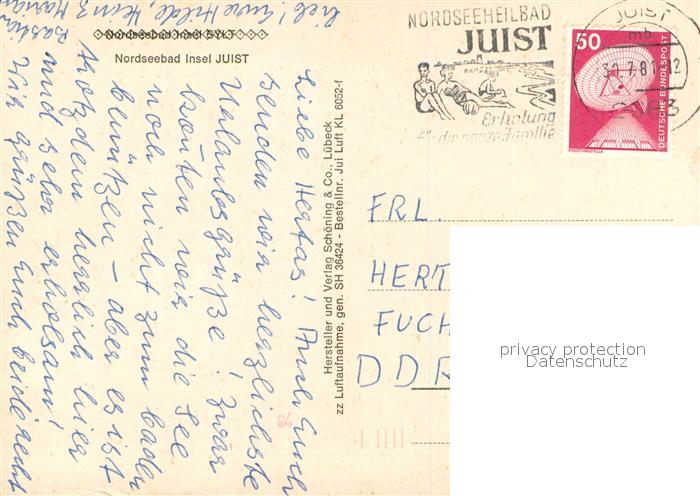 Nordseebad Insel SYLT
Nordseebad Insel JUIST
Liebe Hertas! Auch Euch
senden wir herzlichste
Urlaubsgrüße! Zwar
konnten wir die See
noch nicht zum baden
benützen – aber es ist
trotzdem herrlich hier
und sehr erholsam!
Wir grüßen Euch beide recht
lieb! Eure Hilde, Heinz
Hersteller und Verlag Schöning & Co., Lübeck
zz Luftaufnahme, gen. SH 36424 - Bestellnr. Jui Luft KL 6052-f
NORDSEEHEILBAD
JUIST
Erholung
für die ganze Familie
JUIST
mb
30.7.81
2983
50
DEUTSCHE BUNDESPOST
ERDFUNKSTELLE
FRL.
HERT
FUCH
DDR
privacy protection
Datenschutz